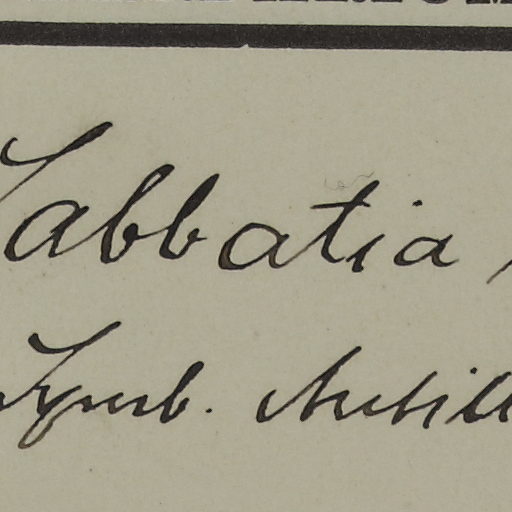 Sabbatia
Symb. Antill